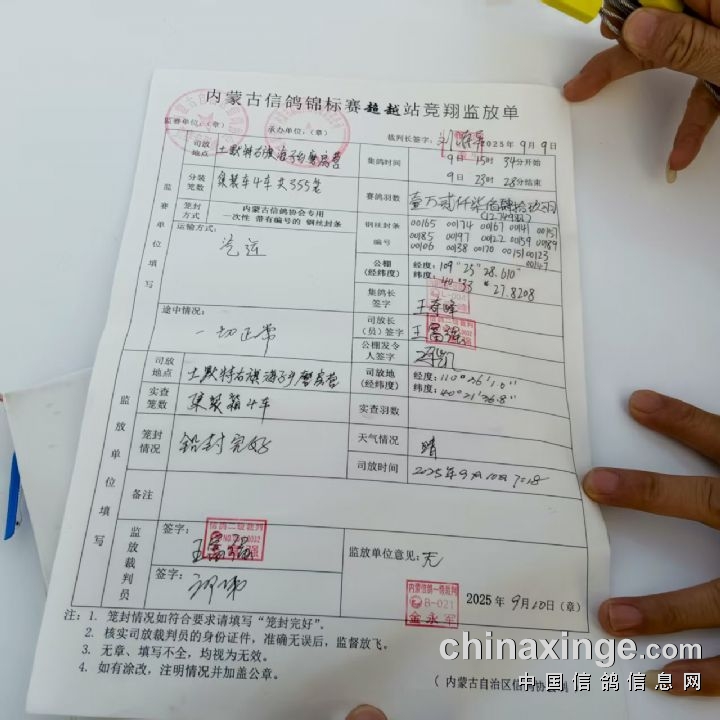 内蒙古信鸽锦标赛超越站竞翔监放单
监赛单位:(章) 承办单位:(章) 裁判长签字: 2025年9月9日
监赛单位填写
司放地点 土默特右旗海子乡磨房营
集鸽时间 9日15时34分开始
9日23时28分结束
分装笼数 集装车4车共355笼
赛鸽羽数 壹万贰仟柒佰肆拾玖羽
(12749羽)
笼封方式 内蒙古信鸽协会专用
一次性 带有编号的 钢丝封条
钢丝封条编号 00165 00174 00167 00141 00151
00185 00197 00122 00159 00189
00106 00138 00170 00151 00123
00147
运输方式: 汽运
公棚(经纬度) 经度:109°25′28.610″
纬度:40°33′27.8208
集鸽长签字 王奇峰
途中情况: 一切正常
司放长(员)签字 王富强
公棚发令人签字
监放单位填写
司放地点 土默特右旗海子乡磨房营
司放地(经纬度) 经度:110°26′1.0″
纬度:40°21′26.8″
实查笼数 集装箱4车
实查羽数
笼封情况 铅封完好
天气情况 晴
司放时间 2025年9月10日7:18
备注
监放裁判员
签字: 王富强
信鸽二级裁判
签字:
监放单位意见: 无
内蒙信鸽一级裁判
B-021
金永军
2025年9月10日(章)
注:1. 笼封情况如符合要求请填写“笼封完好”。
2. 核实司放裁判员的身份证件,准确无误后,监督放飞。
3. 无章、填写不全,均视为无效。
4. 如有涂改,注明情况并加盖公章。
(内蒙古自治区信鸽协会制
chinaxinge.com
中国信鸽信息网